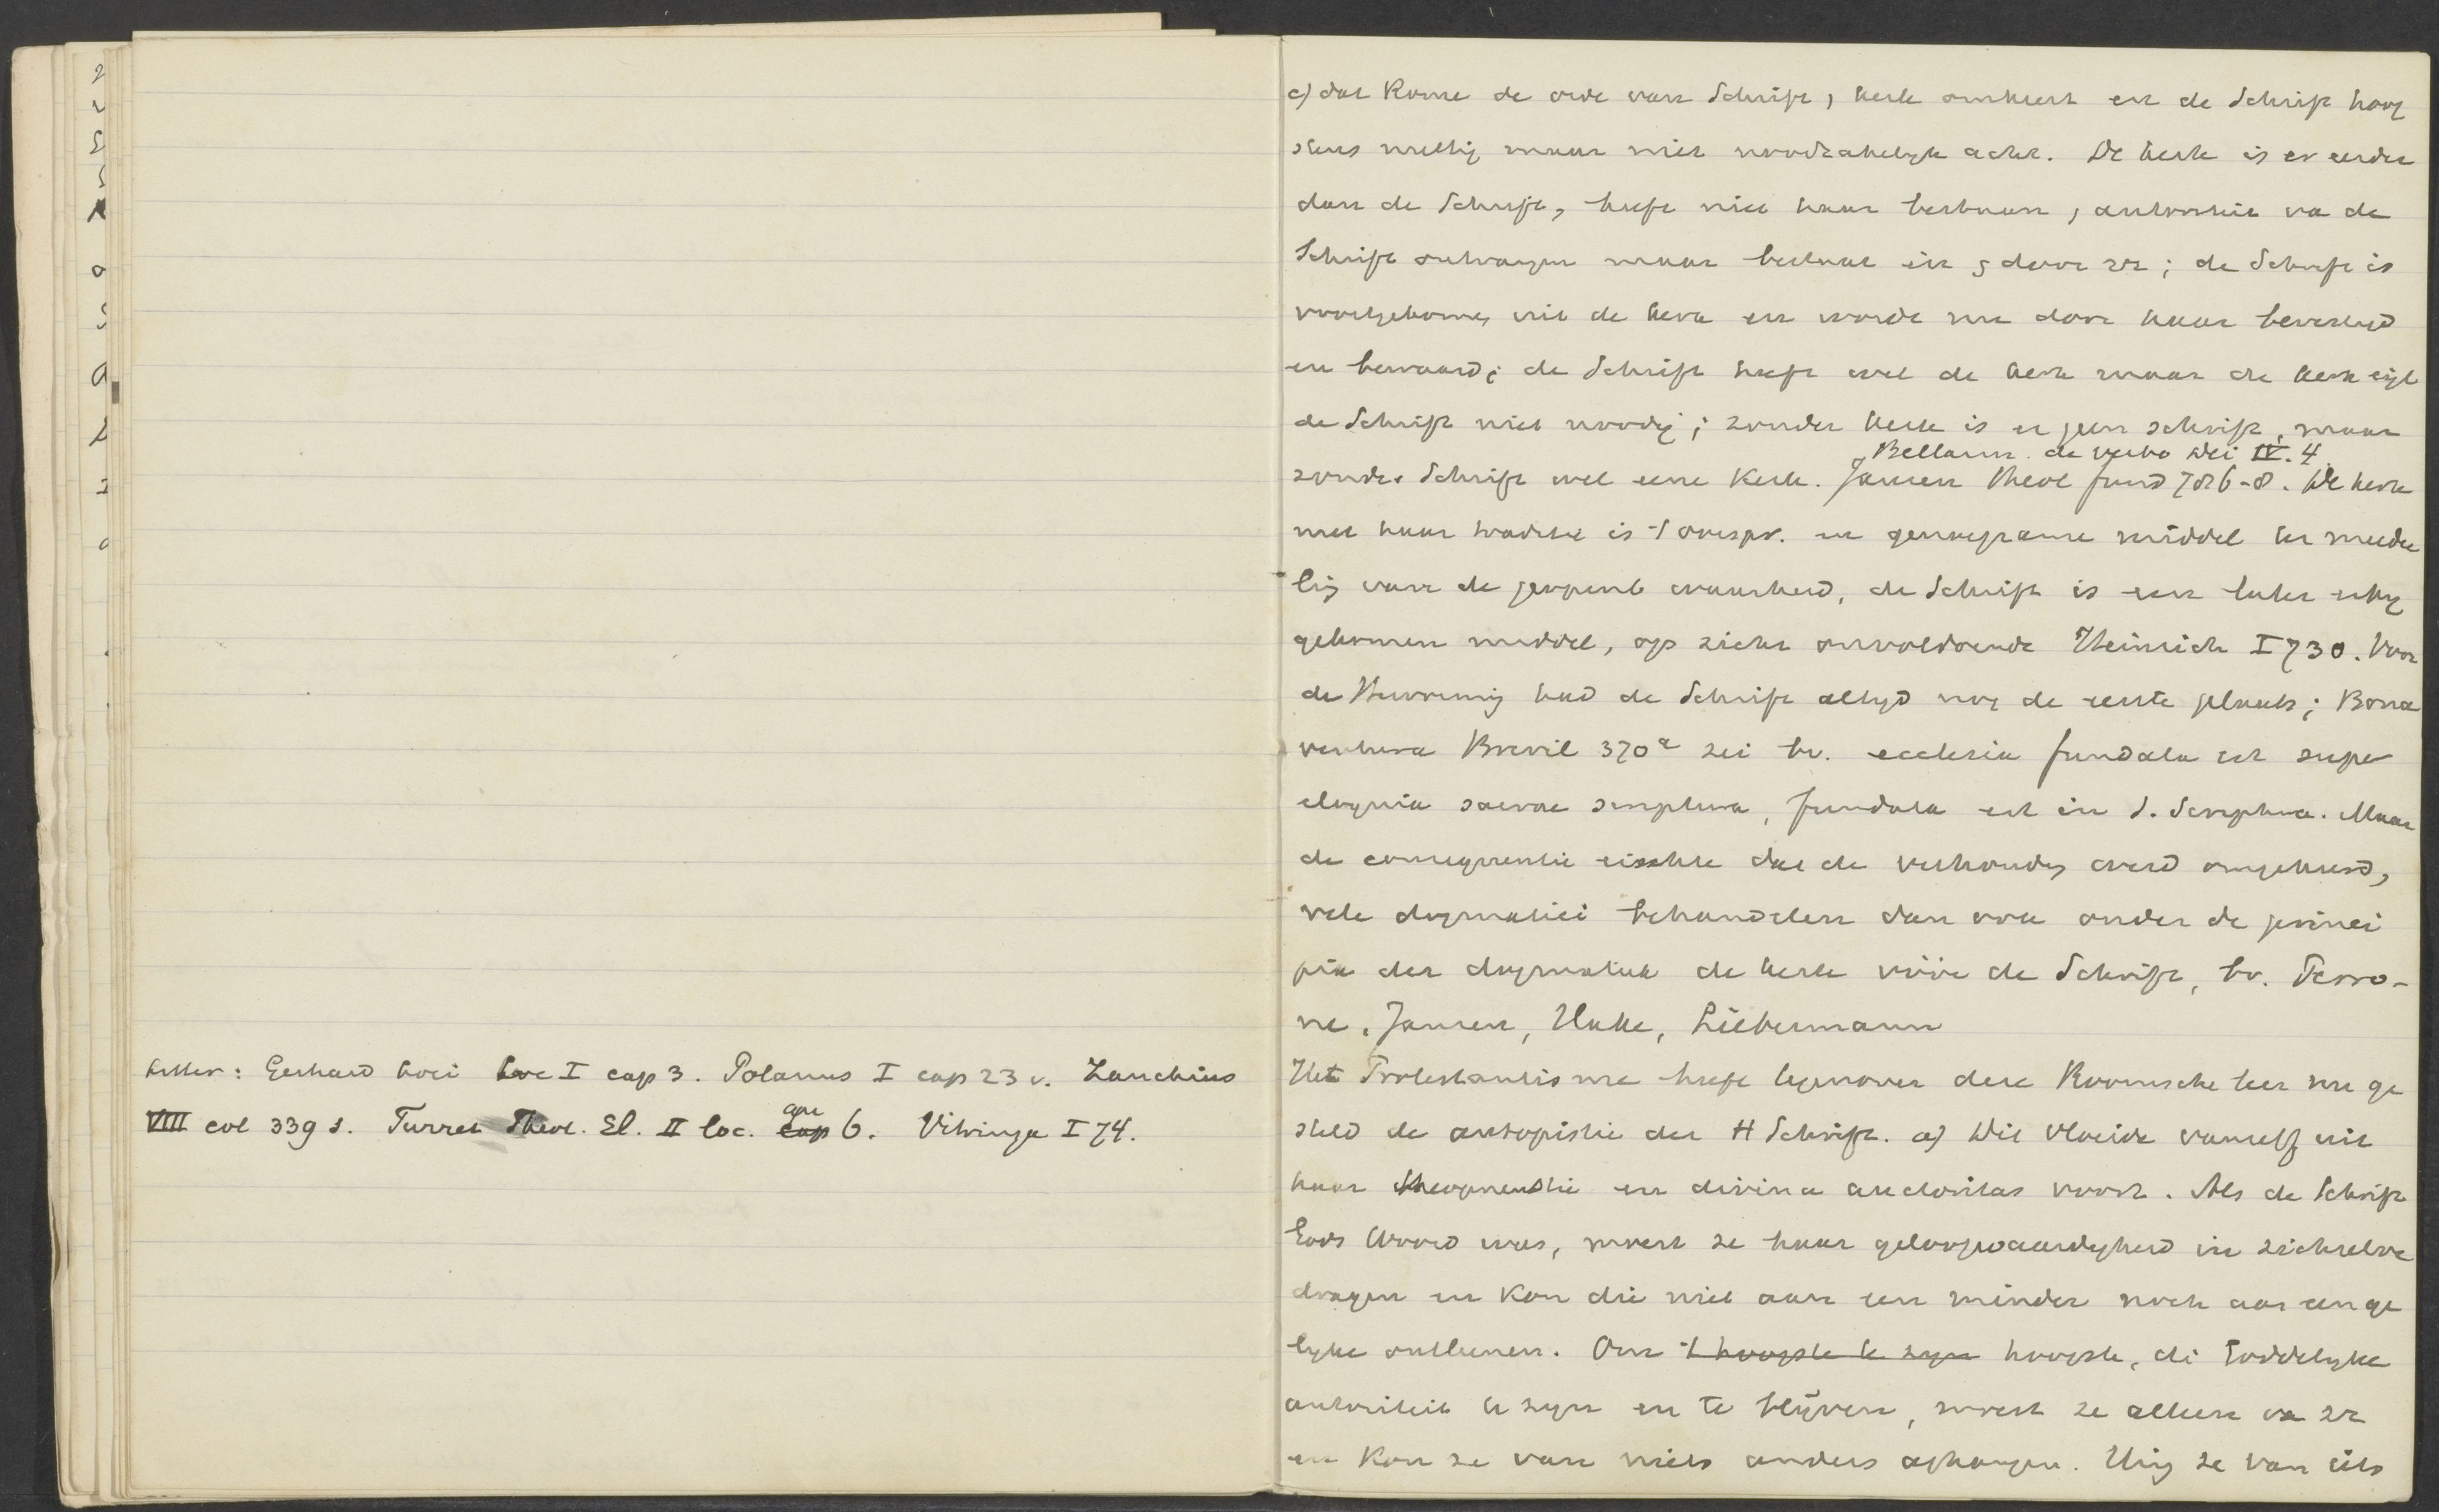 Litter: Gerhard Loci loc I cap 3. Polanus I cap 23 v. Zanchius
VIII col 339 s. Turret Theol. El. II loc. qu 6. Vitringa I 74.
c) dat Rome de orde van Schrift, kerk omkeert en de Schrift hoog
stens nuttig maar niet noodzakelijk acht. De kerk is er eerder
dan de Schrift, heeft niet haar bestaan, autoriteit va de
Schrift ontvangen maar bestaat in & door zz; de Schrift is
voortgekomen uit de kerk en wordt nu door haar bevestigd
en bewaard; de Schrift heeft wel de kerk maar de kerk eigl
de Schrift niet noodig; zonder kerk is er geen schrift, maar
Bellarm. de verbo Dei IV. 4.
zonder Schrift wel eene Kerk. Jansen Theol fund 786-8. De kerk
met haar traditie is 't oorspr. en genoegzame middel ter meedee
ling van de geopenb waarheid, de Schrift is een later erbij
gekomen middel, op zich onvoldoende Heinrich I 730. Voor
de Hervorming had de Schrift altijd nog de eerste plaats; Bona
ventura Brevil 370ª zei bv. ecclesia fundata est super
eloquia sacrae scriptura, fundata est in S. Scriptura. Maar
de consequentie eischte dat de verhouding werd omgekeerd,
vele dogmatici behandelen dan ook onder de princi
pia der dogmatiek de kerk vóór de Schrift, bv. Perro-
ne, Jansen, Hake, Liebermann
Het Protestantisme heeft tegenover deze Roomsche leer nu ge
steld de autopistie der H Schrift. a) Dit vloeide vanzelf uit
haar theopneustie en divina auctoritas voort. Als de Schrift
Gods Woord was, moest ze haar geloofwaardigheid in zichzelve
dragen en kon die niet aan een minder noch aan een ge
lijke ontleenen. Om 't hoogste te zijn hoogste, di Goddelijke
autoriteit te zijn en te blijven, moest ze alleen va zz
en kon ze van niets anders afhangen. Hing ze van iets